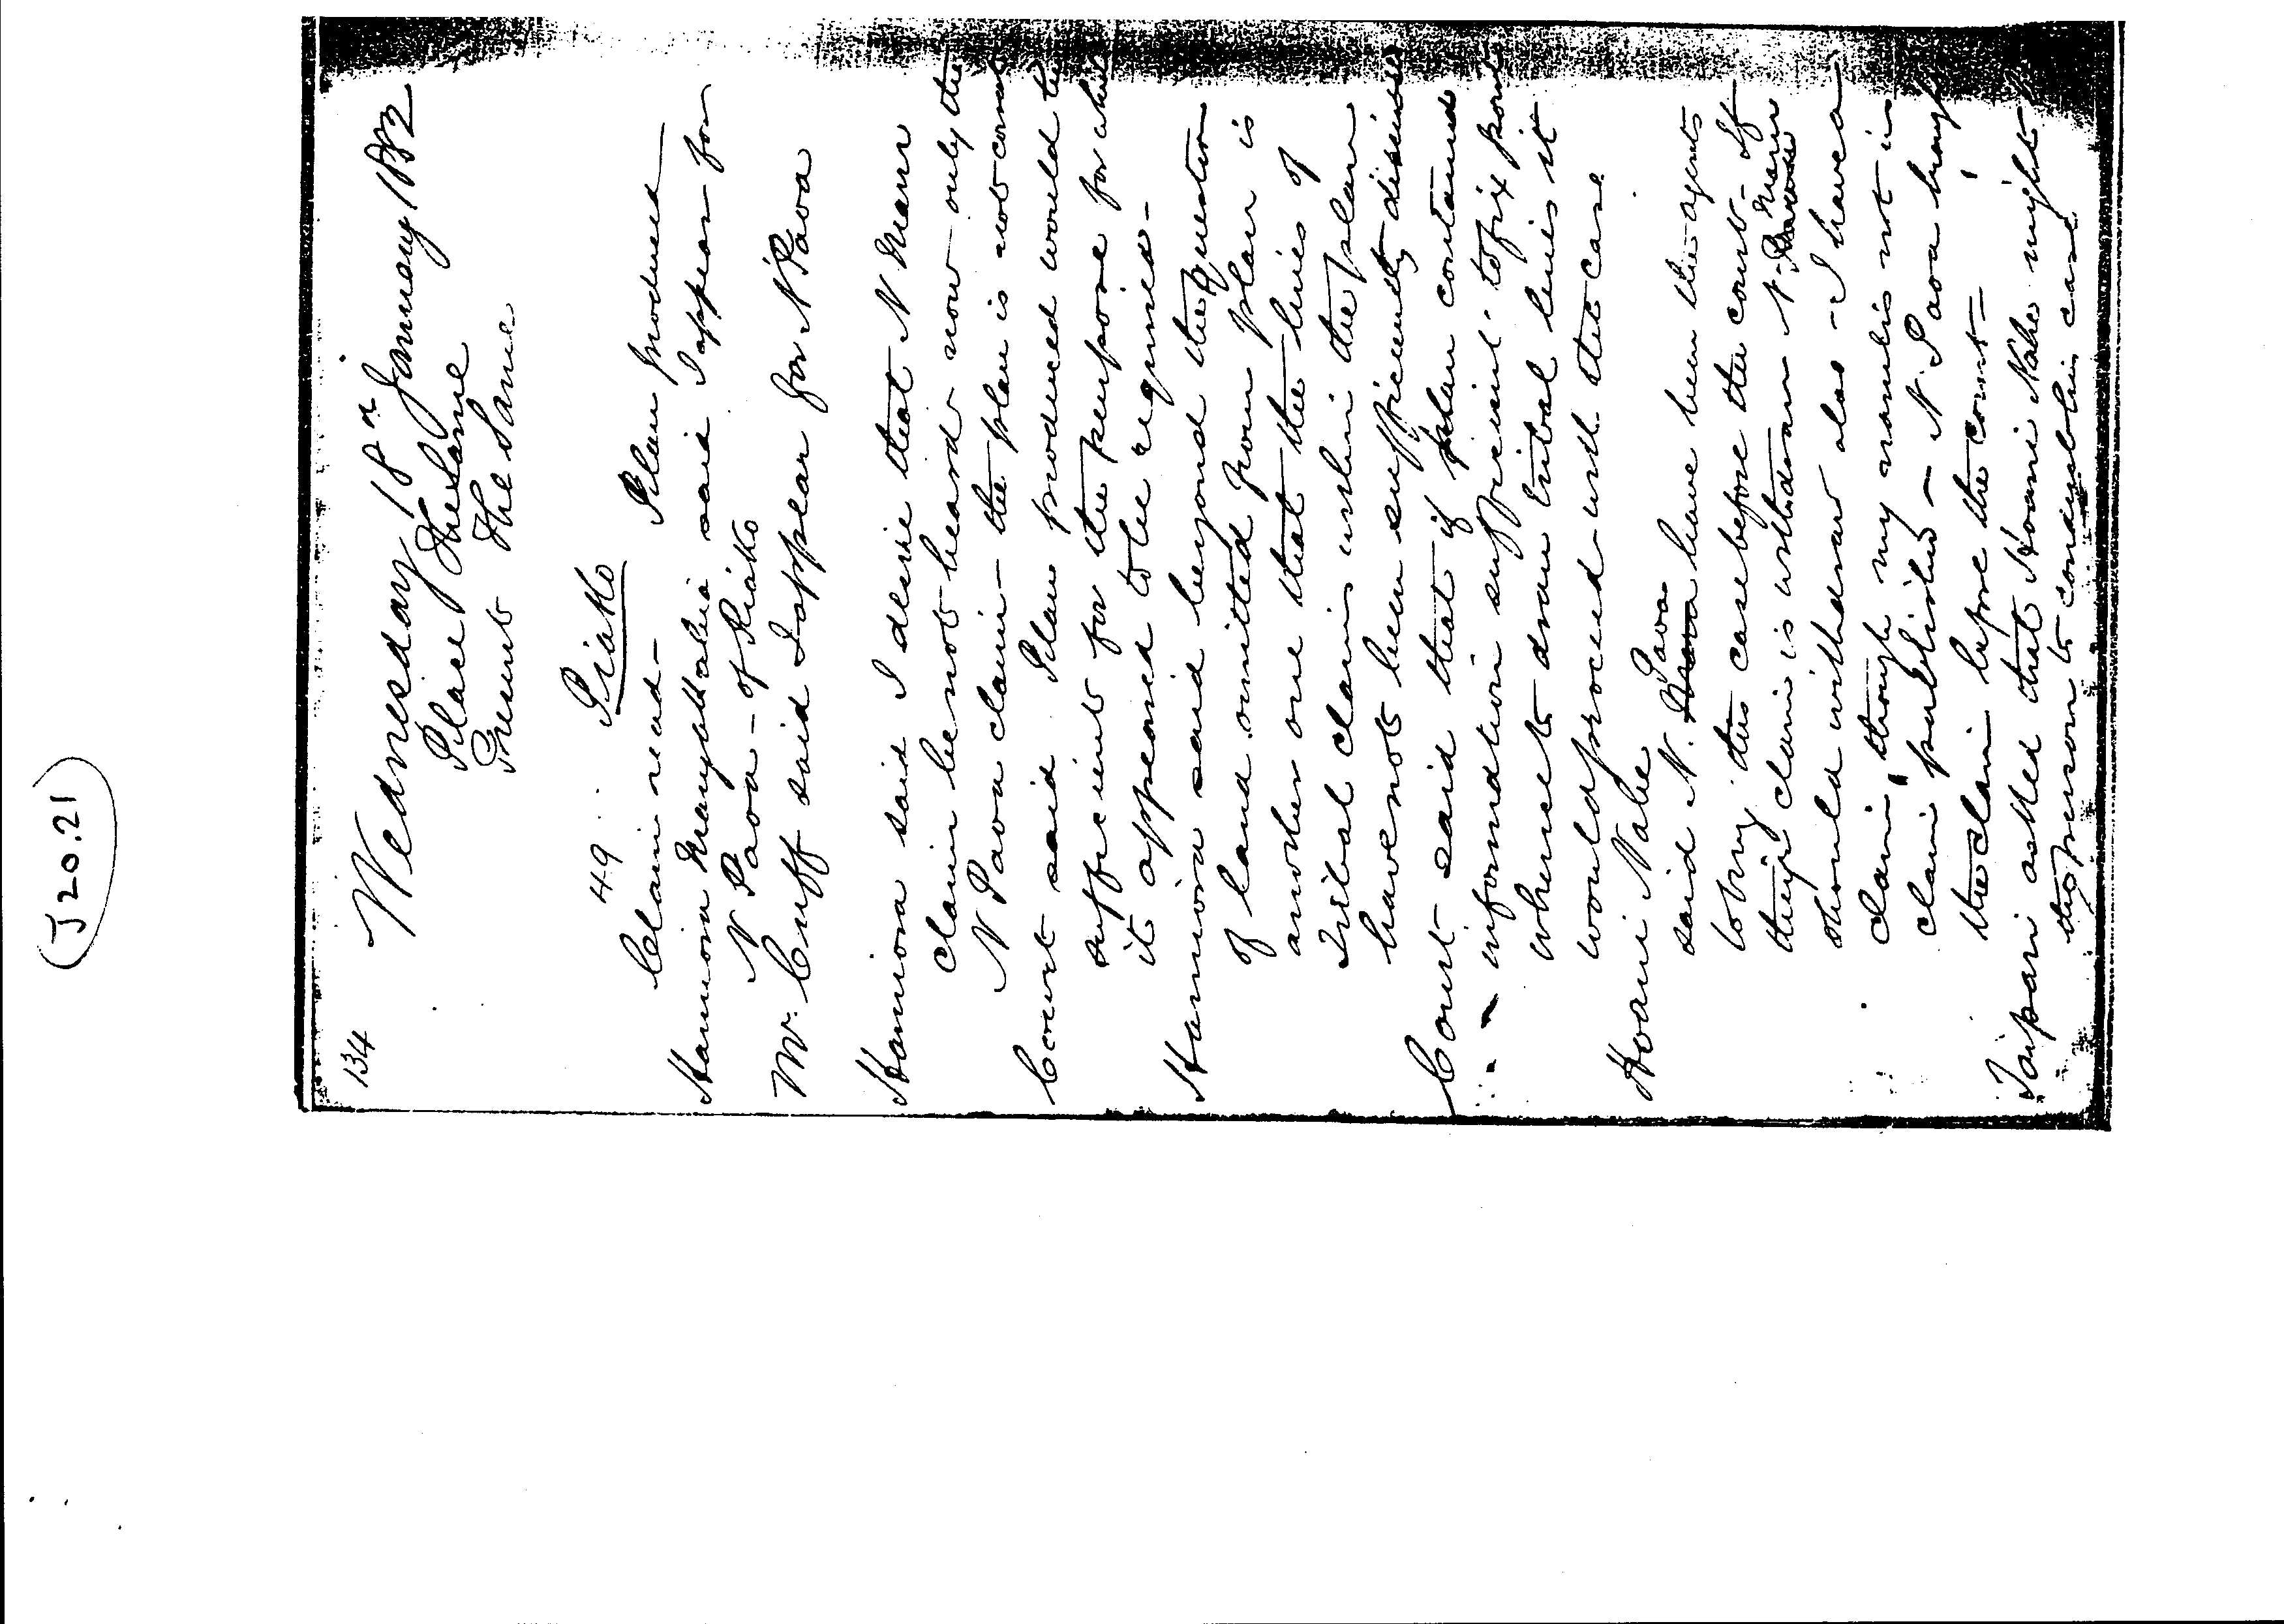 (J 20.21)
134
Wednesday 18th January 1882
Place The Same
Present The Same
49 Piako
Claim read - Plan produced
Hamiora said I appear for
N Paoa - of Piako
Mr. Cuff said I appear for N Paoa
Hamiora said I desire that N Maru
claim be not heard now only the
N Paoa claim - the plan is not correct
Court said Plan produced would be
sufficient for the purpose for which
it appeared to be required -
Hamiora said beyond the question
of land omitted from plan is
another one that the lines of
Tribal claims within the plan
have not been sufficiently
Court said that if plan contained
information sufficient to fix points
whence to draw tribal lines it
would proceed with the case
Hoani Nahe
said N. Paoa have been the agents
to bring this case before the court - If
their claim is withdrawn N. Maru
should withdraw also - I have a
claim, though my name is not in
claim published - N. Paoa brought
the claim before the court -
Taipari asked that Hoani Nahe might
be person to conduct his case